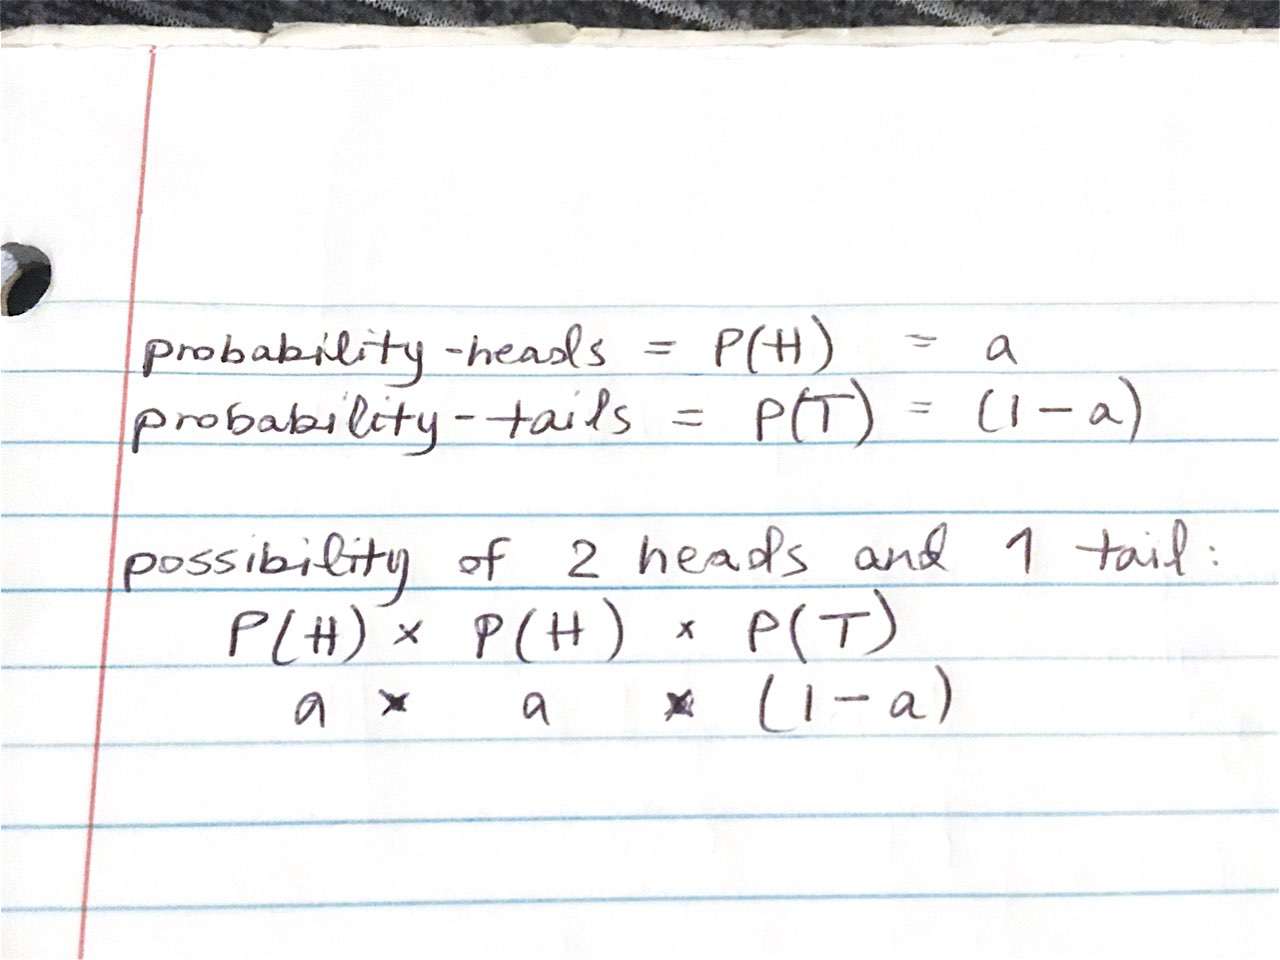 probability-heads = P(H) = a
probability-tails = P(T) = (1-a)
possibility of 2 heads and 1 tail:
P(H) × P(H) × P(T)
a × a × (1-a)